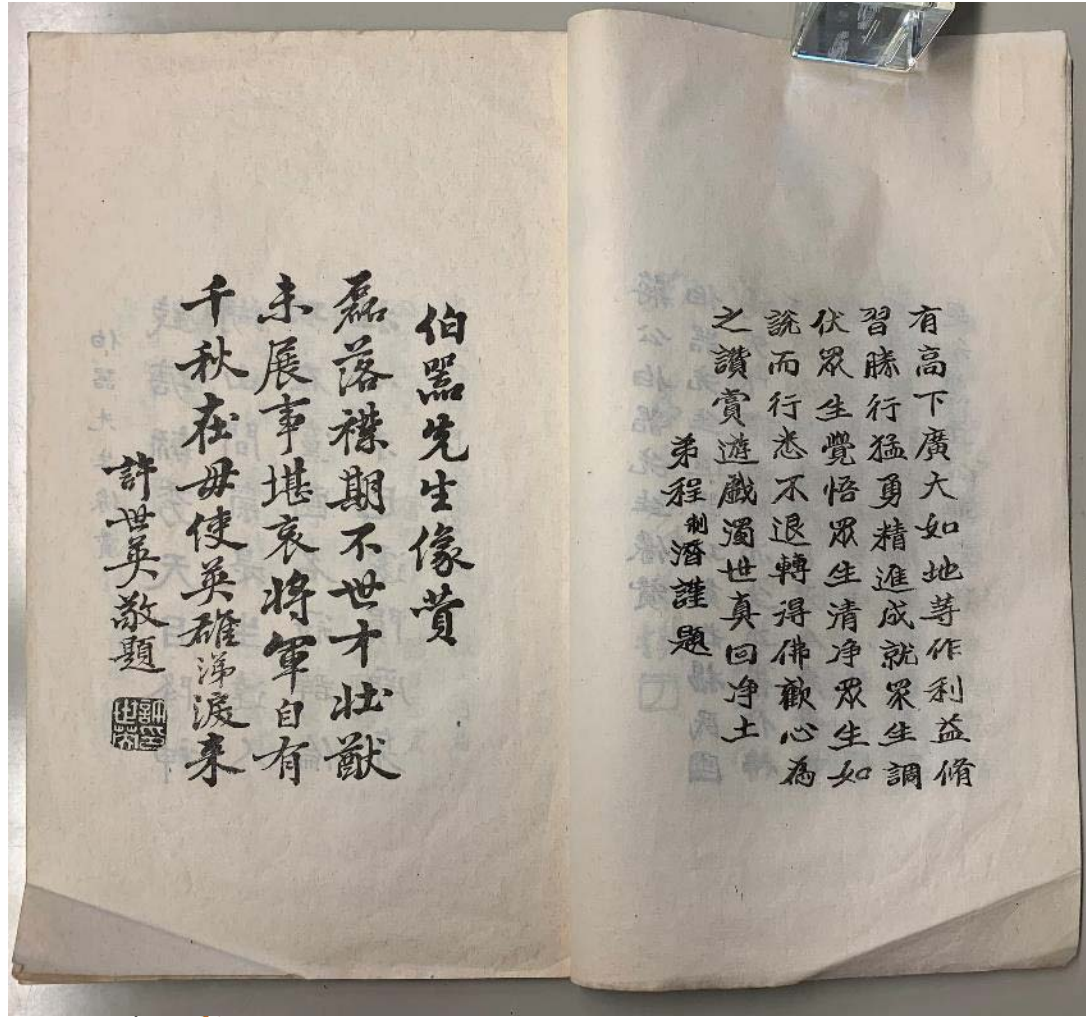 有高下廣大如地等作利益脩
習勝行猛勇精進成就眾生調
伏眾生覺悟眾生清净眾生如
說而行悉不退轉得佛歡心為
之讚賞遊戲濁世真回净土
弟程制潛謹題
伯器先生像贊
磊落襟期不世才壯猷
未展事堪哀將軍自有
千秋在毋使英雄涕淚来
許世英敬題
許印世英